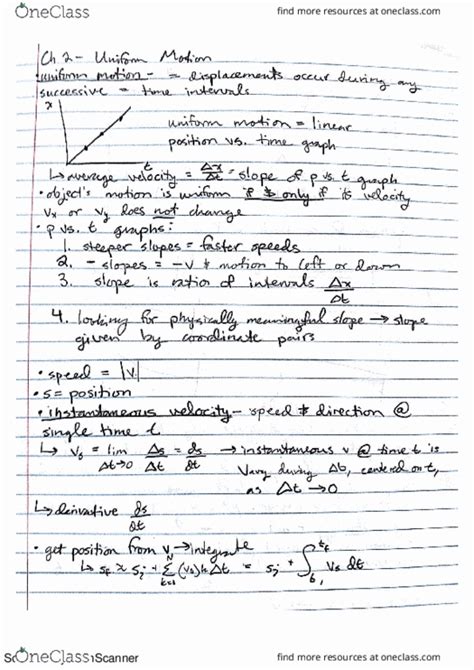 OneClass
find more resources at oneclass.com
Ch 2 - Uniform Motion
uniform motion - = displacements occur during any
successive = time intervals
x
uniform motion = linear
position vs. time
graph
t
↳ average velocity = Δx/Δt = slope of p vs. t graph
• object's motion is uniform if & only if its velocity
Vx or Vy does not change
• p vs. t graphs:
1. steeper slopes = faster speeds
2. - slopes = -v & motion to left or down
3. slope is ratio of intervals Δx/Δt
4. looking for physically meaningful slope → slope
given by coordinate pairs
• speed = |v|
• s = position
• instantaneous velocity - speed & direction @
single time t
↳ Vs = lim Δt→0 Δs/Δt = ds/dt → instantaneous v @ time t is
Vavg during Δt, centered on t,
as Δt → 0
↳ derivative ds/dt
• get position from v → integrate
↳ sf ≈ si + N Σ k=1 (vs)k Δt = si + ∫ tf ti vs dt
OneClass
Scanner
find more resources at oneclass.com